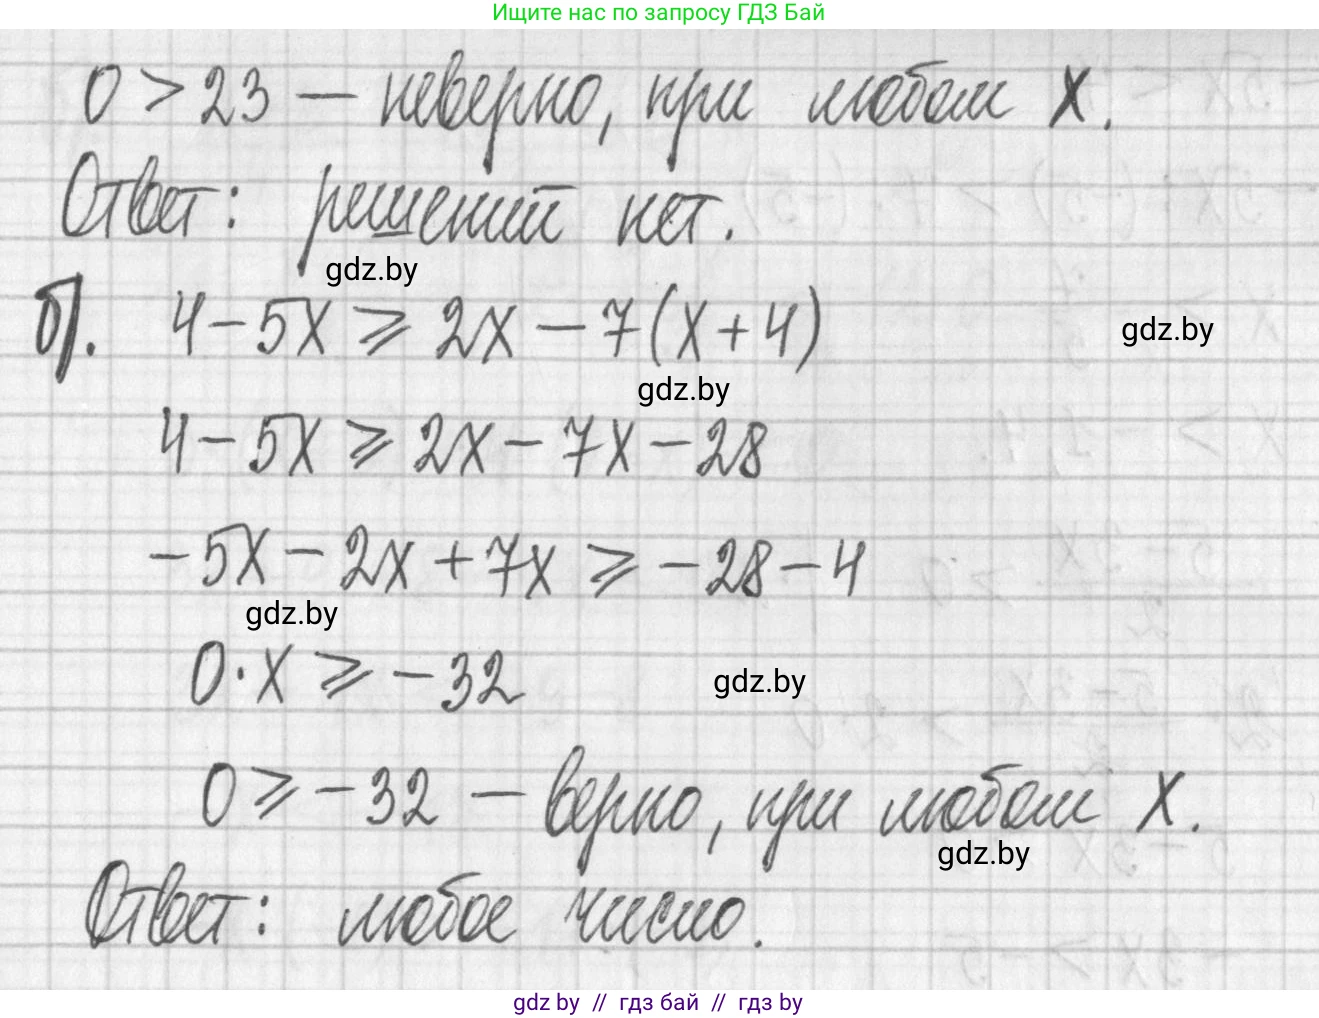 Ищите нас по запросу ГДЗ Бай
0 > 23 — неверно, при любом х.
Ответ: решений нет.
gdz.by
б). 4 - 5х ⩾ 2х - 7(х + 4)
gdz.by
gdz.by
4 - 5х ⩾ 2х - 7х - 28
-5х - 2х + 7х ⩾ -28 - 4
gdz.by
0·х ⩾ -32
gdz.by
0 ⩾ -32 — верно, при любом х.
gdz.by
Ответ: любое число.
gdz by // гдз бай // гдз by